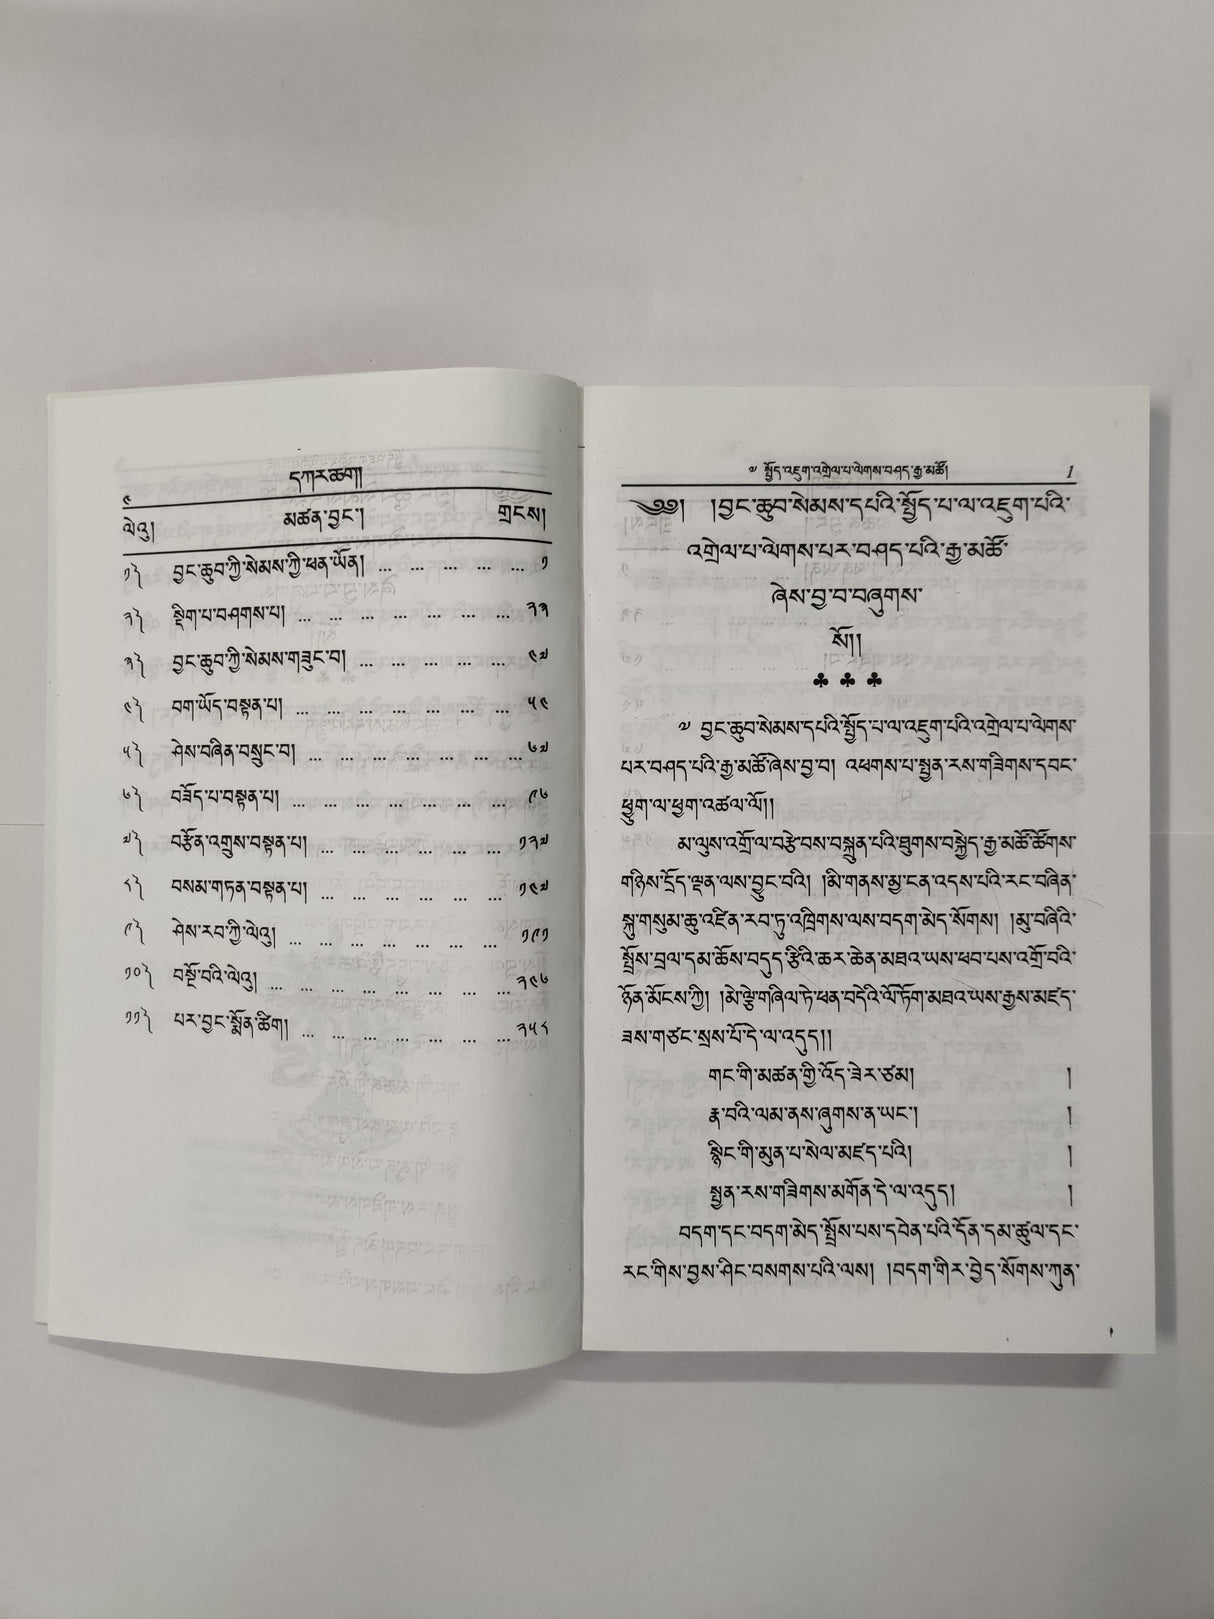 དཀར་ཆག།
༤
ལེའུ། མཚན་བྱང་། གྲངས།
༡༽ བྱང་ཆུབ་ཀྱི་སེམས་ཀྱི་ཕན་ཡོན། ... ... ... ... ... ༡
༢༽ སྡིག་པ་བཤགས་པ། ... ... ... ... ... ... ... ༢༣
༣༽ བྱང་ཆུབ་ཀྱི་སེམས་གཟུང་བ། ... ... ... ... ... ༤༧
༤༽ བག་ཡོད་བསྟན་པ། ... ... ... ... ... ... ... ༥༤
༥༽ ཤེས་བཞིན་བསྲུང་བ། ... ... ... ... ... ... ... ༦༧
༦༽ བཟོད་པ་བསྟན་པ། ... ... ... ... ... ... ... ༩༦
༧༽ བརྩོན་འགྲུས་བསྟན་པ། ... ... ... ... ... ... ༡༢༧
༨༽ བསམ་གཏན་བསྟན་པ། ... ... ... ... ... ... ༡༤༧
༩༽ ཤེས་རབ་ཀྱི་ལེའུ། ... ... ... ... ... ... ... ༡༩༡
༡༠༽ བསྔོ་བའི་ལེའུ། ... ... ... ... ... ... ... ... ༢༤༦
༡༡༽ པར་བྱང་སྨོན་ཚིག། ... ... ... ... ... ... ... ༢༥༨
༧ སྤྱོད་འཇུག་འགྲེལ་པ་ལེགས་བཤད་རྒྱ་མཚོ། 1
༄༅། །བྱང་ཆུབ་སེམས་དཔའི་སྤྱོད་པ་ལ་འཇུག་པའི་
འགྲེལ་པ་ལེགས་པར་བཤད་པའི་རྒྱ་མཚོ་
ཞེས་བྱ་བ་བཞུགས་
སོ།།
♣ ♣ ♣
༧ བྱང་ཆུབ་སེམས་དཔའི་སྤྱོད་པ་ལ་འཇུག་པའི་འགྲེལ་པ་ལེགས་
པར་བཤད་པའི་རྒྱ་མཚོ་ཞེས་བྱ་བ། འཕགས་པ་སྤྱན་རས་གཟིགས་དབང་
ཕྱུག་ལ་ཕྱག་འཚལ་ལོ།།
མ་ལུས་འགྲོ་ལ་བརྩེ་བས་བསྐྲུན་པའི་ཐུགས་བསྐྱེད་རྒྱ་མཚོ་ཚོགས་
གཉིས་དྲོད་ལྡན་ལས་བྱུང་བའི། །མི་གནས་མྱ་ངན་འདས་པའི་རང་བཞིན་
སྐུ་གསུམ་ཆུ་འཛིན་རབ་ཏུ་འཁྲིགས་ལས་བདག་མེད་སོགས། །མུ་བཞིའི་
སྤྲོས་བྲལ་དམ་ཆོས་བདུད་རྩིའི་ཆར་ཆེན་མཐའ་ཡས་ཕབ་པས་འགྲོ་བའི་
ཉོན་མོངས་ཀྱི། །མེ་ལྕེ་གཞིལ་ཏེ་ཕན་བདེའི་ལོ་ཏོག་མཐའ་ཡས་རྒྱས་མཛད་
ཟས་གཙང་སྲས་པོ་དེ་ལ་འདུད།།
གང་གི་མཚན་གྱི་འོད་ཟེར་ཙམ། །
རྣ་བའི་ལམ་ནས་ཞུགས་ན་ཡང་། །
སྙིང་གི་མུན་པ་སེལ་མཛད་པའི། །
སྤྱན་རས་གཟིགས་མགོན་དེ་ལ་འདུད། །
བདག་དང་བདག་མེད་སྤྲོས་པས་དབེན་པའི་དོན་དམ་ཚུལ་དང་
རང་གིས་བྱས་ཤིང་བསགས་པའི་ལས། །བདག་གིར་བྱེད་སོགས་ཀུན་